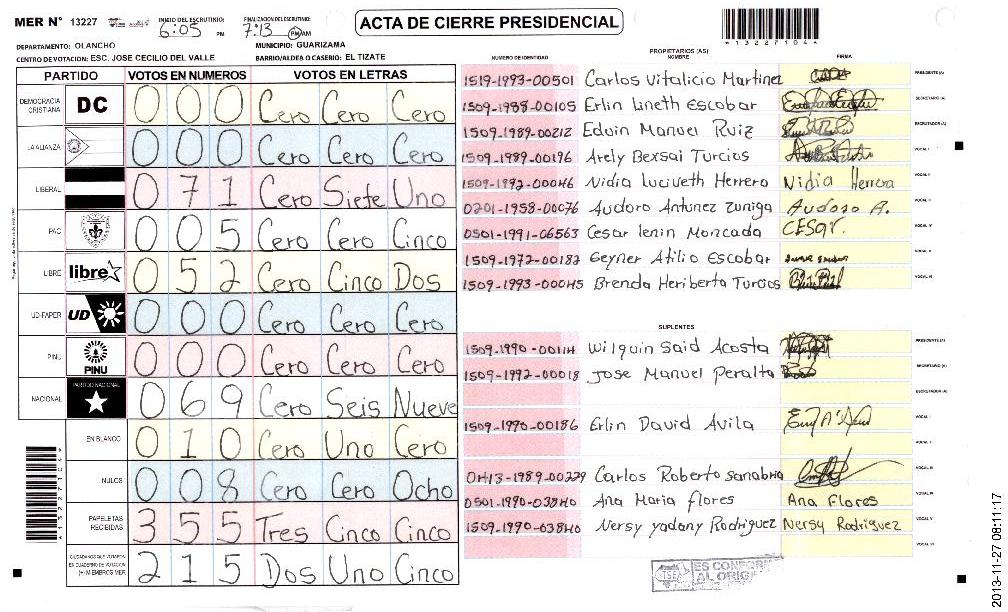 MER N° 13227 INICIO DEL ESCRUTINIO: 6:05 PM FINALIZACION DEL ESCRUTINIO: 7:13 PM AM
ACTA DE CIERRE PRESIDENCIAL
*13227104*
DEPARTAMENTO: OLANCHO MUNICIPIO: GUARIZAMA
CENTRO DE VOTACION: ESC. JOSE CECILIO DEL VALLE BARRIO/ALDEA O CASERIO: EL TIZATE
PARTIDO VOTOS EN NUMEROS VOTOS EN LETRAS
DEMOCRACIA CRISTIANA DC 0 0 0 Cero Cero Cero
LA ALIANZA 0 0 0 Cero Cero Cero
LIBERAL 0 7 1 Cero Siete Uno
PAC 0 0 5 Cero Cero Cinco
LIBRE libre 0 5 2 Cero Cinco Dos
UD-FAPER UD 0 0 0 Cero Cero Cero
PINU PINU 0 0 0 Cero Cero Cero
NACIONAL PARTIDO NACIONAL 0 6 9 Cero Seis Nueve
EN BLANCO 0 1 0 Cero Uno Cero
NULOS 0 0 8 Cero Cero Ocho
PAPELETAS RECIBIDAS 3 5 5 Tres Cinco Cinco
CIUDADANOS QUE VOTARON EN CUADERNO DE VOTACION (+) MIEMBROS MER 2 1 5 Dos Uno Cinco
PROPIETARIOS (AS)
NUMERO DE IDENTIDAD NOMBRE FIRMA
1519-1993-00501 Carlos Vitalicio Martinez PRESIDENTE (A)
1509-1988-00105 Erlin Lineth Escobar SECRETARIO (A)
1509-1989-00212 Edvin Manuel Ruiz ESCRUTADOR (A)
1509-1989-00196 Arely Bexsai Turcios VOCAL I
1509-1992-00046 Nidia Luciveth Herrero Nidia Herrera VOCAL II
0201-1958-00076 Audoro Antunez zuniga Audoro A. VOCAL III
0501-1991-06563 Cesar lenin Moncada CESar. VOCAL IV
1509-1972-00182 Geyner Atilio Escobar VOCAL V
1509-1993-00045 Brenda Heriberta Turcios VOCAL VI
SUPLENTES
1509-1990-00114 Wilquin Said Acosta PRESIDENTE (A)
1509-1992-00018 Jose Manuel Peralta SECRETARIO (A)
ESCRUTADOR (A)
1509-1990-00186 Erlin David Avila VOCAL I
VOCAL II
0413-1989-00229 Carlos Roberto Sanabria VOCAL III
0501-1990-03840 Ana Maria flores Ana Flores VOCAL IV
1509-1990-03840 Nersy yadany Rodriguez Nersy Rodriguez VOCAL V
VOCAL VI
TSE ES CONFORME AL ORIGI
2013-11-27 08:11:17